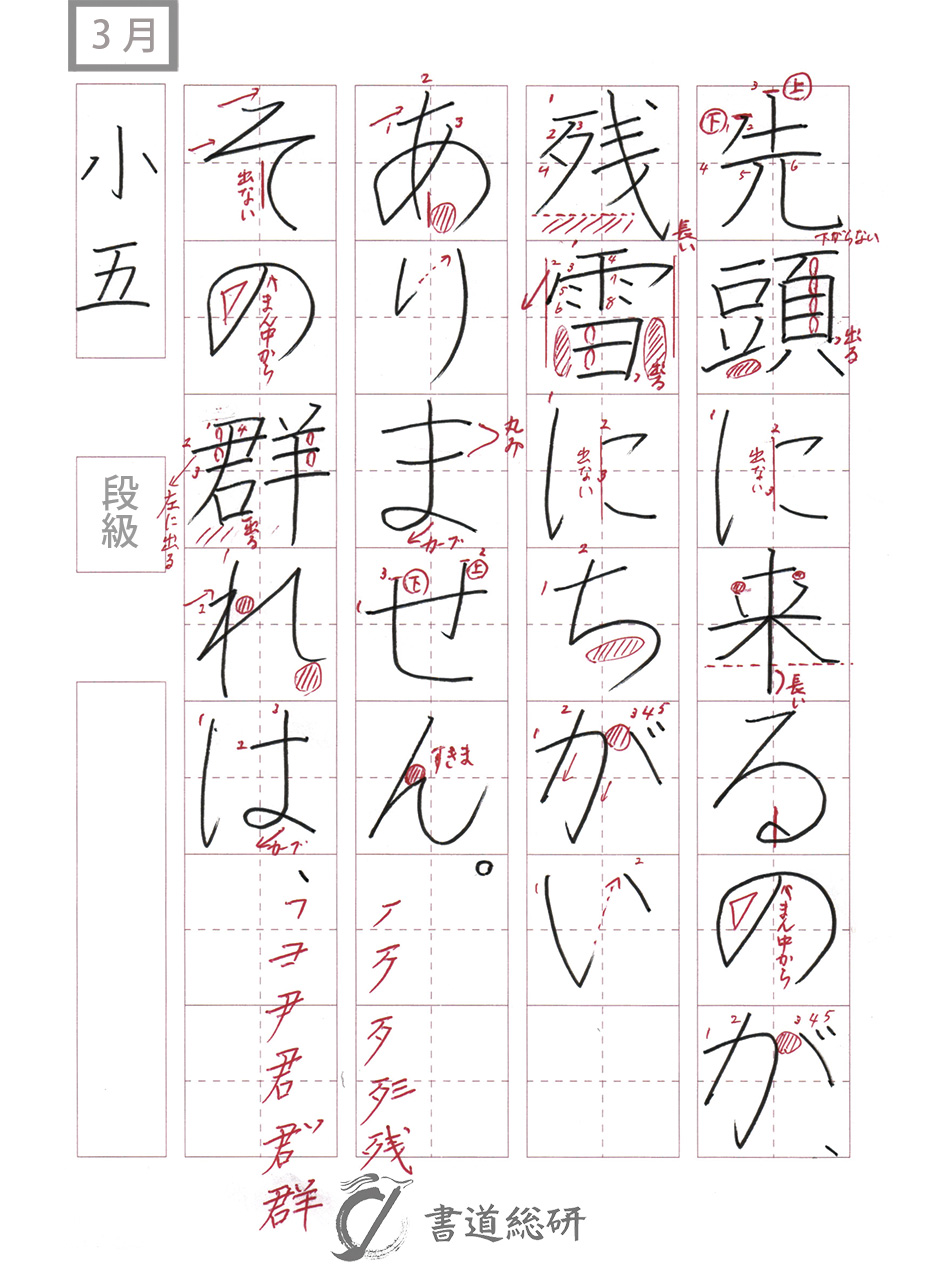 3月
先頭に来るのが、
残雪にちがい
ありません。
その群れは、
小五
段級
上
下
下がらない
出る
出ない
長い
まん中から
長い
出る
出ない
丸み
カーブ
上
下
すきま
出ない
まん中から
左に出る
出る
カーブ
残
フ
ヨ
尹
君
群
書道総研